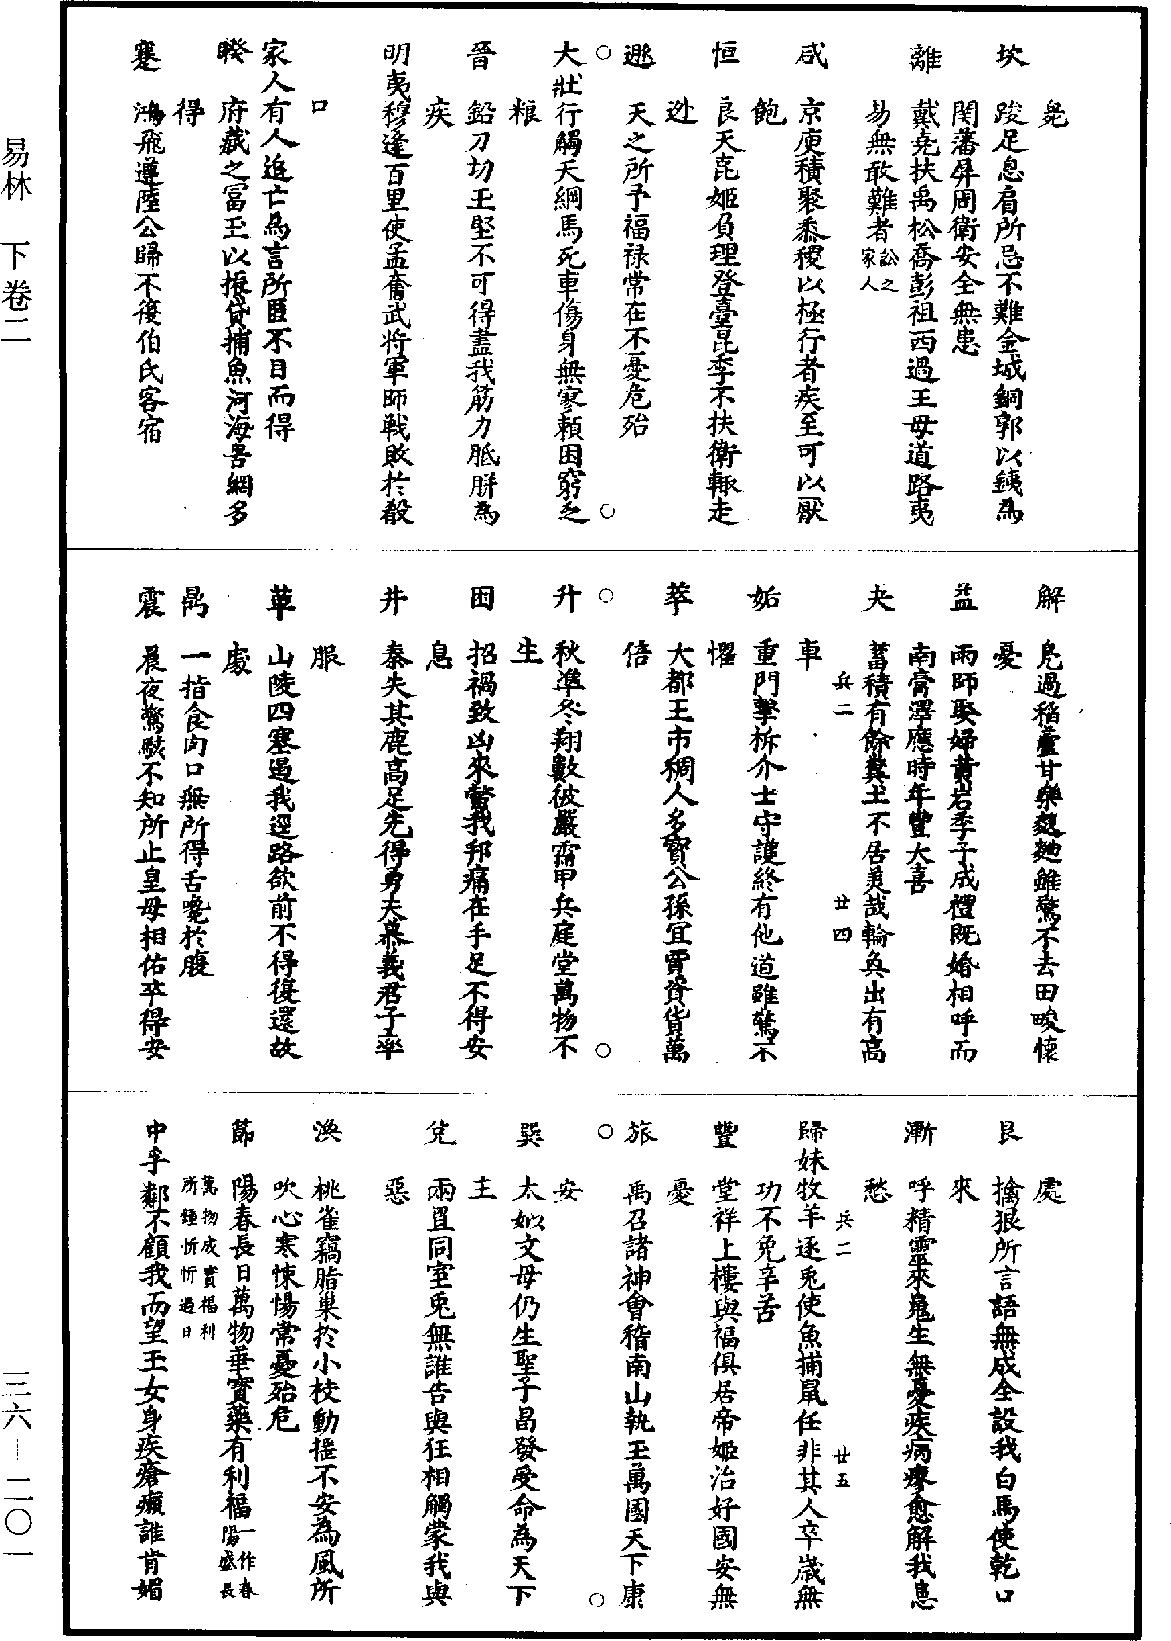 㲋
坎　踆足息肩所忌不難金城銅郭以鐵為
閑藩屏周衛安全無患
離　戴堯扶禹松喬彭祖西過王母道路夷
易無敢難者訟之家人
咸　京庾積聚黍稷以極行者疾至可以厭
飽
恒　良夫昆姬負理登臺昆季不扶衛輒走
逃
遯　天之所予福祿常在不憂危殆
大壯行觸天網馬死車傷身無寥賴困窮乏
粮
晉　鉛刀切玉堅不可得盡我筋力胝胼為
疾
明夷穆逢百里使孟奮武將軍師戰敗於殽
口
家人有人追亡鳥言所匿不日而得
睽　府藏之冨王以振貸捕魚河海罟網多
得
蹇　鴻飛遵陸公歸不復伯氏客宿
解　鳧過稻蘆甘樂䴬䵅雖驚不去田畯懷
憂
益　雨師娶婦黃岩季子成禮既婚相呼而
南膏澤應時年豐大喜
夬　蓄積有餘糞土不居美哉輪奐出有高
車
兵二
廿四
姤　重門擊柝介士守護終有他道雖驚不
懼
萃　大都王市稠人多寶公孫宜賈資貨萬
倍
升　秋準冬翔數被嚴霜甲兵庭堂萬物不
生
困　招禍致凶來螫我邦痛在手足不得安
息
井　秦失其鹿高足先得勇夫慕義君子率
服
革　山陵四塞遏我逕路欲前不得復還故
處
鼎　一指食肉口無所得舌嚵於腹
震　晨夜驚駭不知所止皇母相佑卒得安
處
艮　擒狠所言語無成全設我白馬使乾口
來
漸　呼精靈來魄生無憂疾病瘳愈解我患
愁
兵二
廿五
歸妹牧羊逐兎使魚捕鼠任非其人卒歲無
功不免辛苦
豐　堂祥上樓與福俱居帝姬治好國安無
憂
旅　禹召諸神會稽南山執玉萬國天下康
安
巽　太姒文母仍生聖子昌發受命為天下
主
兌　兩置同室兎無誰告與狂相觸蒙我與
惡
渙　桃雀竊脂巢於小枝動搖不安為風所
吹心寒悚惕常憂殆危
節　陽春長日萬物華實藥有利福一作春陽盛長
萬物成實福利所鍾忻忻過日
中孚鄰不顧我而望王女身疾瘡癩誰肯媚
易林　下卷二
三六－二〇一